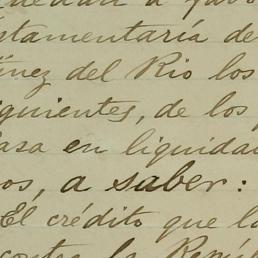 quedan a favo
stamentaría de
tínez del Rio los
guientes, de los
casa en liquidac
os, a saber:
El crédito que la
contra la Repúb